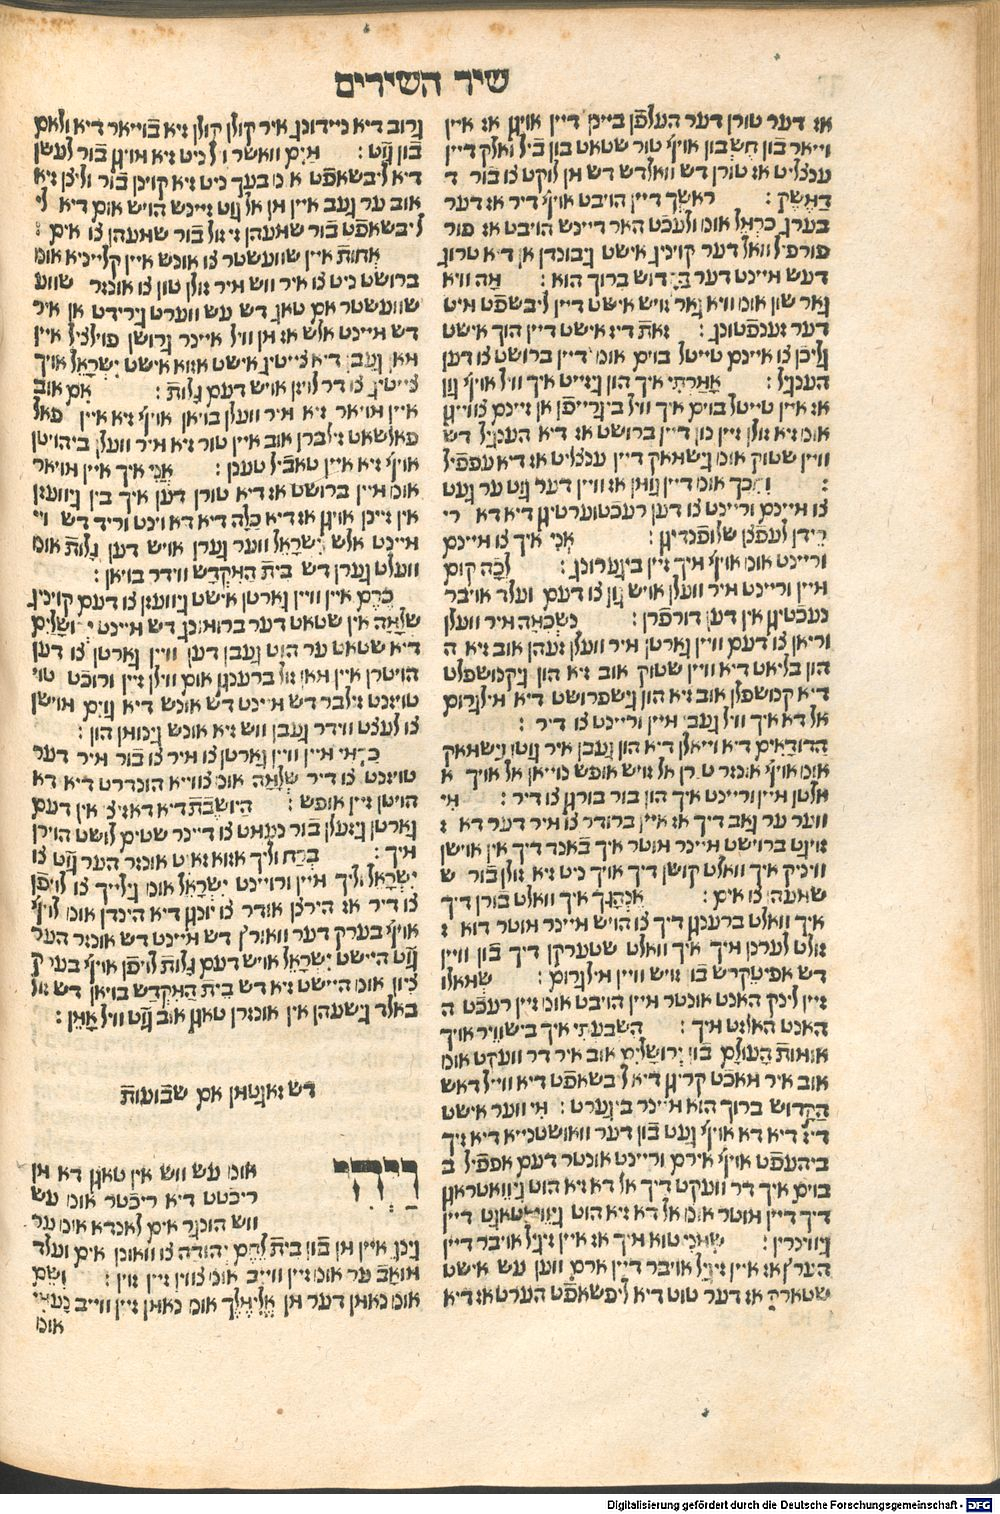 שיר השירים
אז דער טורן דער העלפֿן ביימ דיין אויגן אז איין
ווייאר בֿון חשבון אויף טור שטאט בון בֿיל וֹאלק דיין
ענצליט אז טורן דש וואלדש דש מן לוקט צו בֿור ד
דַמֶשֶק : ראשֵך דיין הויבט אויף דיר אז דער
בערג כַרְמֶל אומ ולעכֿט האר דיינש הויבט אז פור
פורפיל וואל דער קויניג אישט גיבונדן אן דיא טרוג
דעש מיינט דער קדוש ברוך הוא : מָה וויא
גאר שון אומ וויא גאר זויש אישט דיין ליבשפֿט מיט
דער זענפֿטונג : זאת דיז אישט דיין הוך אישט
גליכֿן צו איינם טייטל בוים אומ דיין ברושט צו דען
העכֿגיל : אָמַרְתִי איך הון גיזייט איך וויל אויף גון
אז איין טייטל בוים איך וויל ביגרייפֿן אן זיינם צווייגן
אומ זיא זולן זיין נון דיין ברושט אז דיא העכֿגיל דש
וויין שטוק אומ גישמאק דיין ענצליט אז דיא עפפֿיל
: וחכך אומ דיין גומן אז וויין דער גוט ער געט
צו מיינם ורייינט צו דען רעכֿטוערטיגן דיא דא רי
רידן לעפֿצן שלופֿנדיגן : אֲנִי איך צו מיינם
ורייינט אומ אויף מיך זיין ביגערונג : לְכָה קום
מיין ורייינט מיר וועלן אויש גון צו דעם ועלד אויבר
נעכֿטיגן אין דען דורפֿרן : נַשְכִּמָה מיר וועלן
וריאן צו דעם וויין גארטן מיר וועלן זעהן אוב זיא ה
הון בליאט דיא וויין שטוק אוב זיא הון גיקנושפלט
דיא קנושפלן אוב זיא הון גישפרושט דיא מילגרום
אל דא איך וויל געבן מיין ורייינט צו דיר :
הַדודָאִים דיא וייאלן דיא הון געבן איר גוטן גישמאק
אומ אויף אונזר טירן אל זויש אופש נוייאן אל אויך א
אלטן מיין ורייינט איך הון בור בורגן צו דיר : מי
ווער ער גאב דיך אז איין ברודר צו מיר דער דא ז
זוינט ברוישט מיינר מוטר איך בֿאנד דיך אין אוישן
וויניק איך וואלט קושן דיך אויך ניט זיא זולן בֿור ש
שמעהן צו אים : אֶנְהָגֲך איך וואלט בֿורן דיך
איך וואלט ברענגן דיך צו הויש מיינר מוטר דוא ז
זולט לערנן מיך איך וואלט שטערקן דיך בֿון וויין
דש אפיטקרש בֿון זויש וויין מילגרום : שְׂמאלו
זיין לינק האנט אונטר מיין הויבט אומ זיין רעכֿט ה
האנט האלזט מיך : השבעתי איך בישוויר אויך
אומות הָעולָם בֿון יְרושלים אוב איר דר וועקט אומ
אוב איר מאכֿט קריגן דיא ליבשאפֿט דיא ווייל דאש
הַקָדוש ברוך הוא מיינר ביגערט : מִי ווער אישט
דיז דיא דא אויף געט בֿון דער וואושטנייא דיא זיך
ביהעפֿט אויף אירם ורייינט אונטר דעם אפפֿיל ב
בוים איך דר וועקט דיך אל דא זיא הוט גיוואטראגן
דיך דיין מוטר אומ אל דא זיא הוט גיוואטאגט דיין
גיווינרין : שִמֵנִי טוא מיך אז איין זיגיל אויבר דיין
הערץ אז איין זיגיל אויבר דיין ארם ווען עש אישט
שטארק אז דער טוט דיא ליפשאפֿט הערט אז דיא
גרוב דיא ניידונג איר קולן קולן זיא בֿווייאר דיא ולאם
בֿון גוט : מַיִם וואשר ול ניט זיא מויגן בור לעשן
דיא ליבשאפֿט אומ בעך ניט זיא קוינן בֿור וליצן זיא
אוב ער געב איין מן אל גוט זיינש הויש אום דיא לי
ליבשאפֿט בור שמעהן זי זול בור שמעהן צו אים :
אָחות איין שוועשטר צו אונש איין קליינא אומ
ברושט ניט צו איר ווש מיר זולן טון צו אונזר שווע
שוועשטר אם טאג דש עש ווערט גירידט אן איר
דש מיינט אלש אז מן וויל איינר גרושן פוילציל איין
מאן געבן דיא צייטיג אישט אזוא אישט יִשְרָאֵל אויך
צייטיג צו דר לויזן אויש דעם גָלות : אִם אוב
איין מויאר זיא מיר וועלן בויאן אויף זיא איין פאל
פאלשאט זילברן אוב איין טור זיא מיר וועלן ביהויטן
אויף זיא איין טאפֿיל טענן : אֲנִי איך איין מויאר
אומ מיין ברושט אז דיא טורן דען איך בין גיוועזן
אין זיינן אויגן אז דיא כַּלָה דיא דא וינט וריד דש וי
מיינט אלש יִשְרָאֵל ווער גערן אויש דען גָלות אומ
וועלט גערן דש בית הַמִקְדָש ווידר בויאן :
כֶּרֶם איין וויין גארטן אישט גיוועזן צו דעם קויניג
שְלֹמֹה אין שטאט דער ברומונג דש מיינט יְרושָלַיִם
דיא שטאט ער הוט געבן דען וויין גארטן צו דען
הויטרן איין מאן זול ברענגן אום ווילן זיין ורוכֿט טוי
טויזנט זילבר דש מיינט דש אונש דיא גוים מוישן
צו לעצט ווידר געבן ווש זיא אונש גינומן הון :
כַּרְמִי מיין וויין גארטן צו מיר צו בֿור מיר דער
טויזנט צו דיר שְלֹמֹה אומ צווייא הונדרט דיא דא
הויטן זיין אופש : הַיושֶבֶת דיא דא זיצ אין דעם
גארטן גיזעלן בֿור נעמט צו דיינר שטים לושט הוירן
מיך : בְּרַח וליך אזוא זאגט אונזר הער גוט צו
יִשְרָאֵל וליך מיין ורוייט ישראל אומ גלייך צו לויפֿן
צו דיר אז הירצן אודר צו יונגן דיא הינדן אומ לויף
אויף בערק דער וואורץ דש מיינט דש אונזר הער
גוט היישט יִשְרָאֵל אויש דעם גָלות לויפֿן אויף בערק
ציון אומ היישט זיא דש בֵית הַמִקְדָש בויאן דש זול
באלד גישעהן אין אונזרן טאגן אוב גוט וויל אָמֵן :
דש זאגטמן אם שבֿועות
וַיְהִי אומ עש ווש אין טאגן דא מן
ריכֿטט דיא ריכֿטר אומ עש
ווש הונגר אים לאנדא אומ ער
גינג איין מן בֿון בית לֶחֶם יְהודָה צו וואונן אים ועלד
מואָב ער אומ זיין ווייב אומ צווין זיין זוין : ושֵם
אומ נאמן דער מן אֱלִימֶלֶך אומ נאמן זיין ווייב נָעֳמִי
אומ
Digitalisierung gefördert durch die Deutsche Forschungsgemeinschaft - DFG